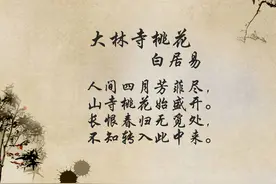 大林寺桃花
白居易
人间四月芳菲尽，
山寺桃花始盛开。
长恨春归无觅处，
不知转入此中来。